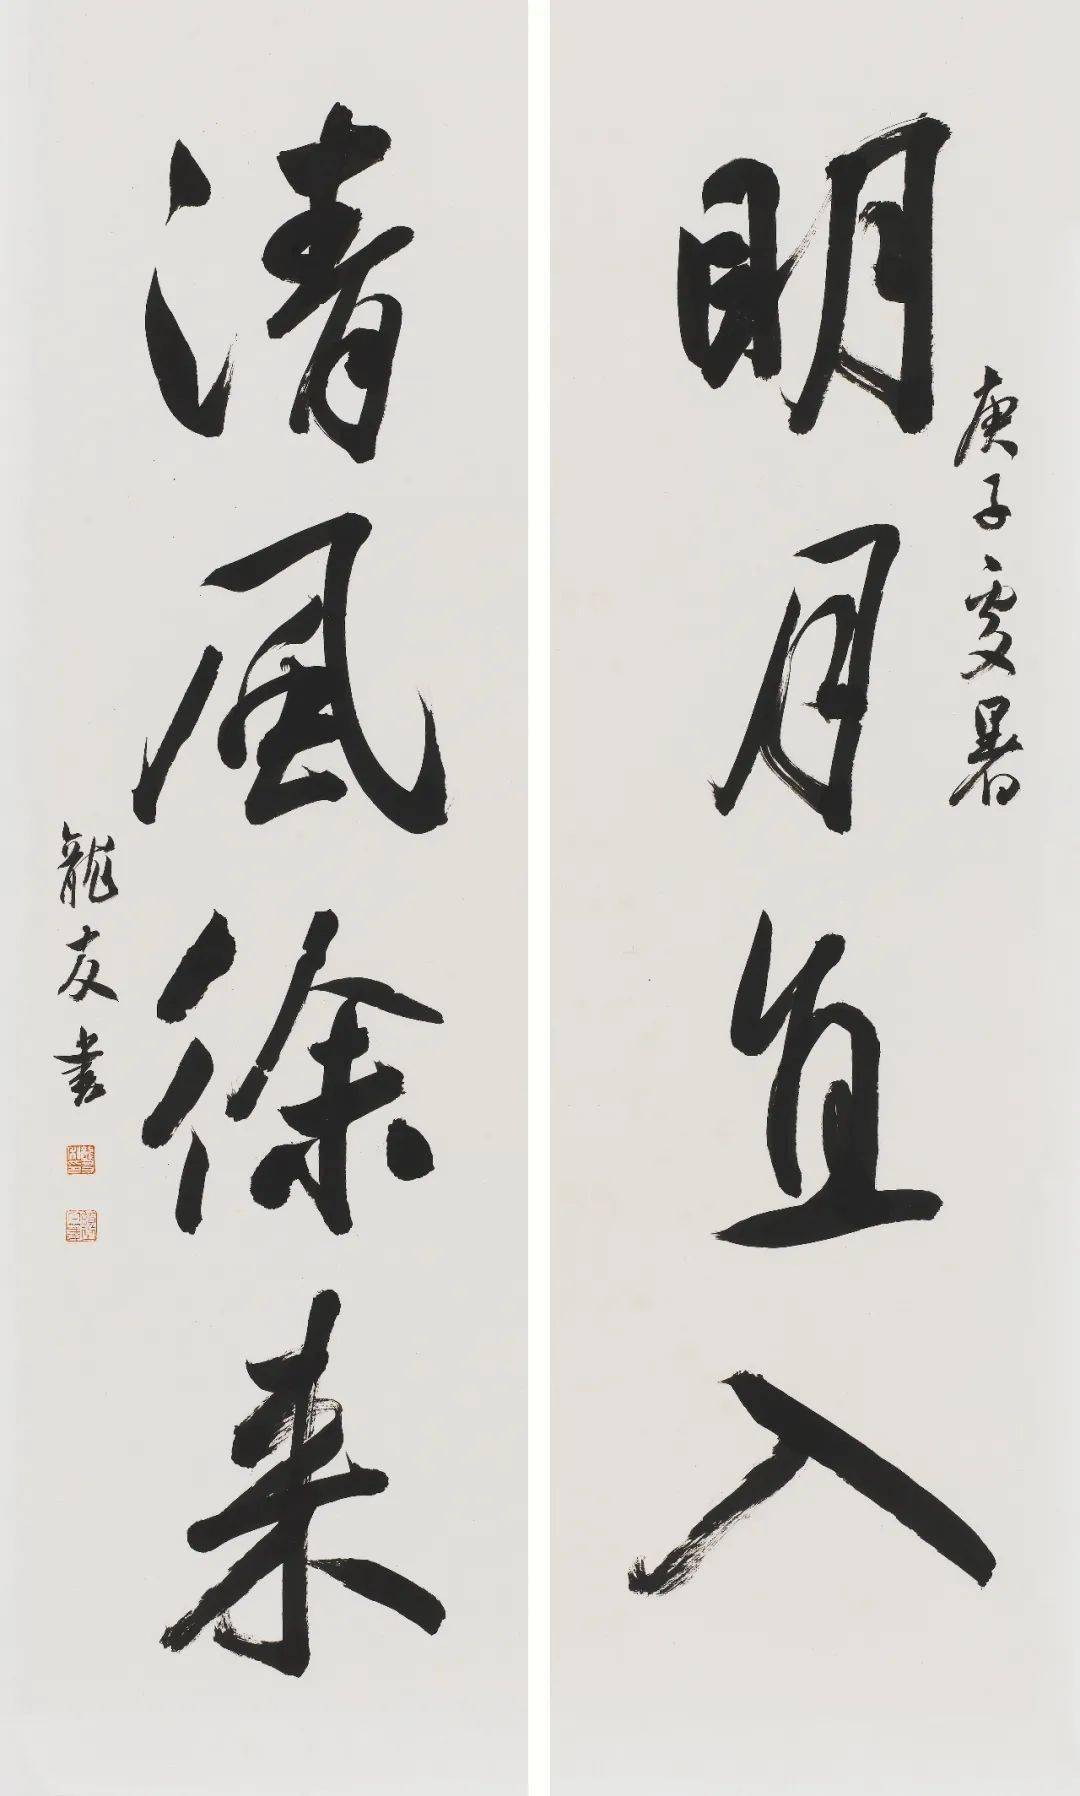 庚子處暑
明月直入
清風徐来
龍友書